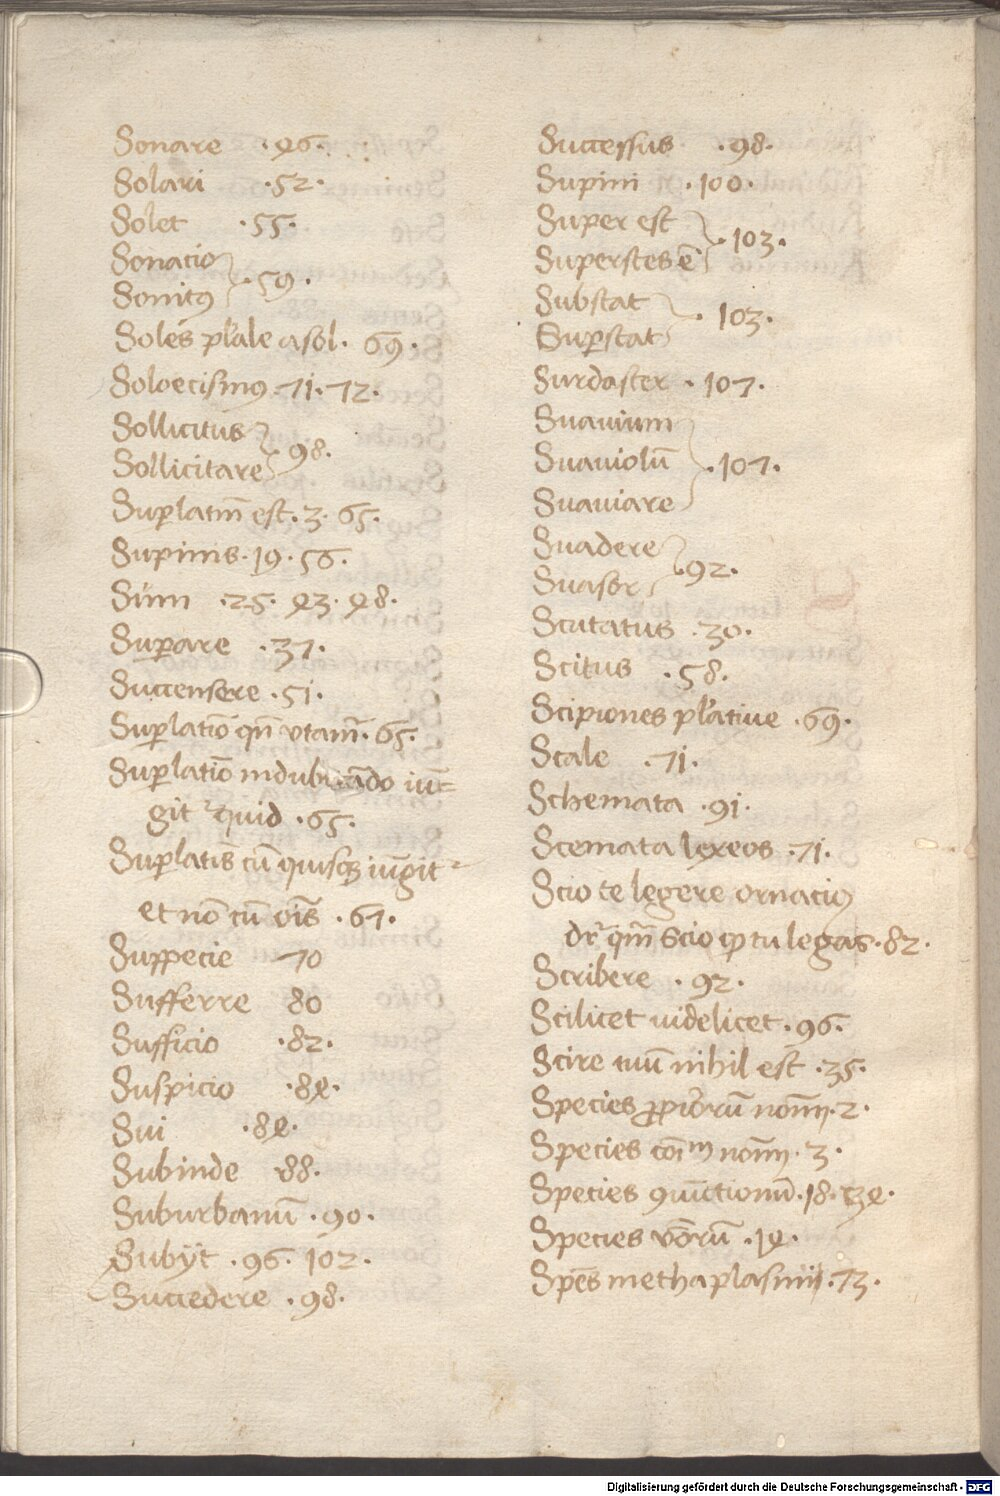 Sonare .46.
Solari .52.
Solet .55.
Sonacio
Sonitꝰ .59.
Soles pl'ale a sol. 69.
Soloecismꝰ .71.72.
Sollicitus
Sollicitare 98.
Suꝑlatiū est .3. 65.
Supinis .19. 56.
Sum .25. 43. 48.
Suꝑare .37.
Succensere .51.
Suꝑlatiō qn̄ utamr̄ .65.
Suꝑlatiō indubitādo iū=
git quid .65.
Suꝑlatiō cū quisqꝫ iūgit
et nō cū oīs .67.
Suppecie 70
Sufferre 80
Sufficio .82.
Suspicio .84.
Sui .84.
Subinde 88.
Suburbanū .90.
Subijt .96. 102.
Succedere .98.
Successus .98.
Supini .100.
Super est
Superstes ē .103.
Substat
Suꝑstat .103.
Surdaster .107.
Suauium
Suauiolū .107.
Suauiare
Suadere
Suasor .92.
Scutatus .30.
Scitus .58.
Scipiones pl'atiue .69.
Scale .71.
Schemata .91.
Scemata lexeos .71.
Scio te legere ornaciꝰ
dr̄ qm̄ Scio ꝙ tu legas .82.
Scribere .92.
Scilicet uidelicet .96.
Scire tuū nihil est .35.
Species ꝓpriorū nom̄ .2.
Species cōīm nom̄ .3.
Species ꝯiūctionū .18. 34.
Species vborū .14.
Spēs methaplasmi .73.
Digitalisierung gefördert durch die Deutsche Forschungsgemeinschaft - DFG